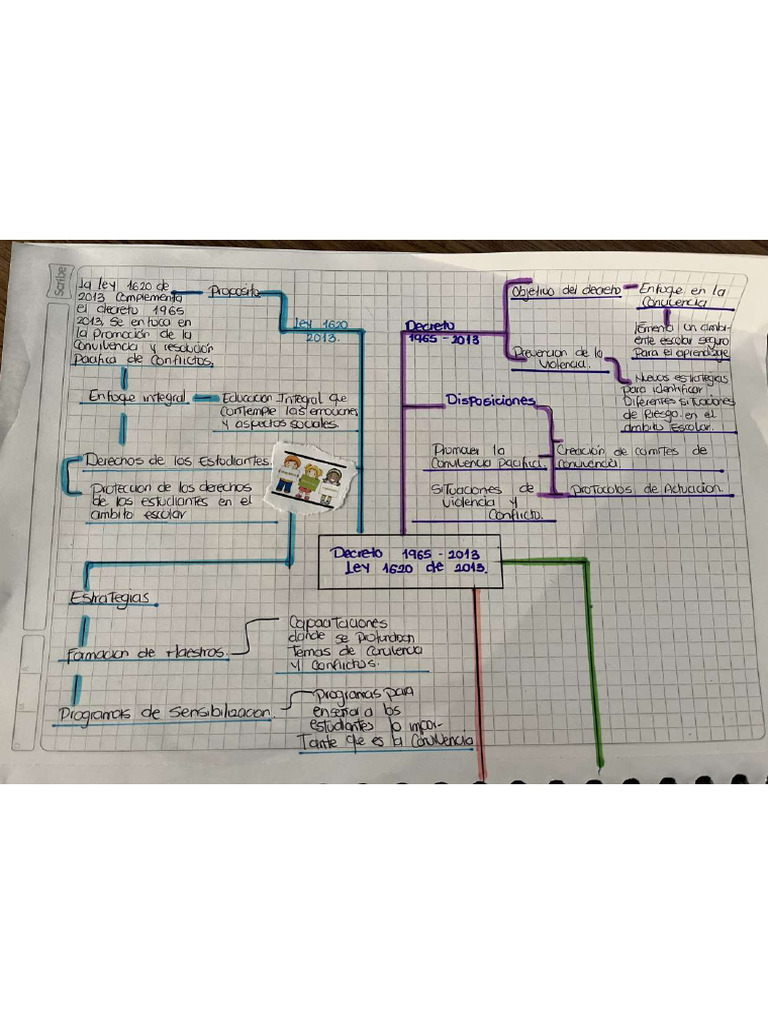 Scribe
La ley 1620 de
2013 complementa
el decreto 1965
2013 se enfoca en
la promoción de la
Convivencia y resolución
Pacifica de Conflictos.
Proposito
Ley 1620
2013.
Enfoque integral
Educación Integral que
contemple las emociones
y aspectos sociales.
Derechos de los Estudiantes.
Protección de los derechos
de los estudiantes en el
ambito escolar
Decreto
1965 - 2013
Objetivo del decreto
Enfoque en la
Convivencia
fomenta un ambi-
ente escolar seguro
Para el aprendizaje
Prevencion de la
Violencia.
Nuevos estrategias
para identificar
Diferentes situaciones
de Riesgo en el
ámbito Escolar.
Disposiciones
Promover la
Convivencia pacifica.
Creación de comites de
convivencia
Situaciones de
violencia y
Conflicto.
Protocolos de Actuacion.
Decreto 1965 - 2013
Ley 1620 de 2013.
Estrategias
Formacion de Maestros.
Capacitaciones
donde se profundizan
Temas de Convivencia
y Conflictos.
Programas de Sensibilizacion.
Programas para
enseñar a los
estudiantes lo impor-
Tante que es la Convivencia